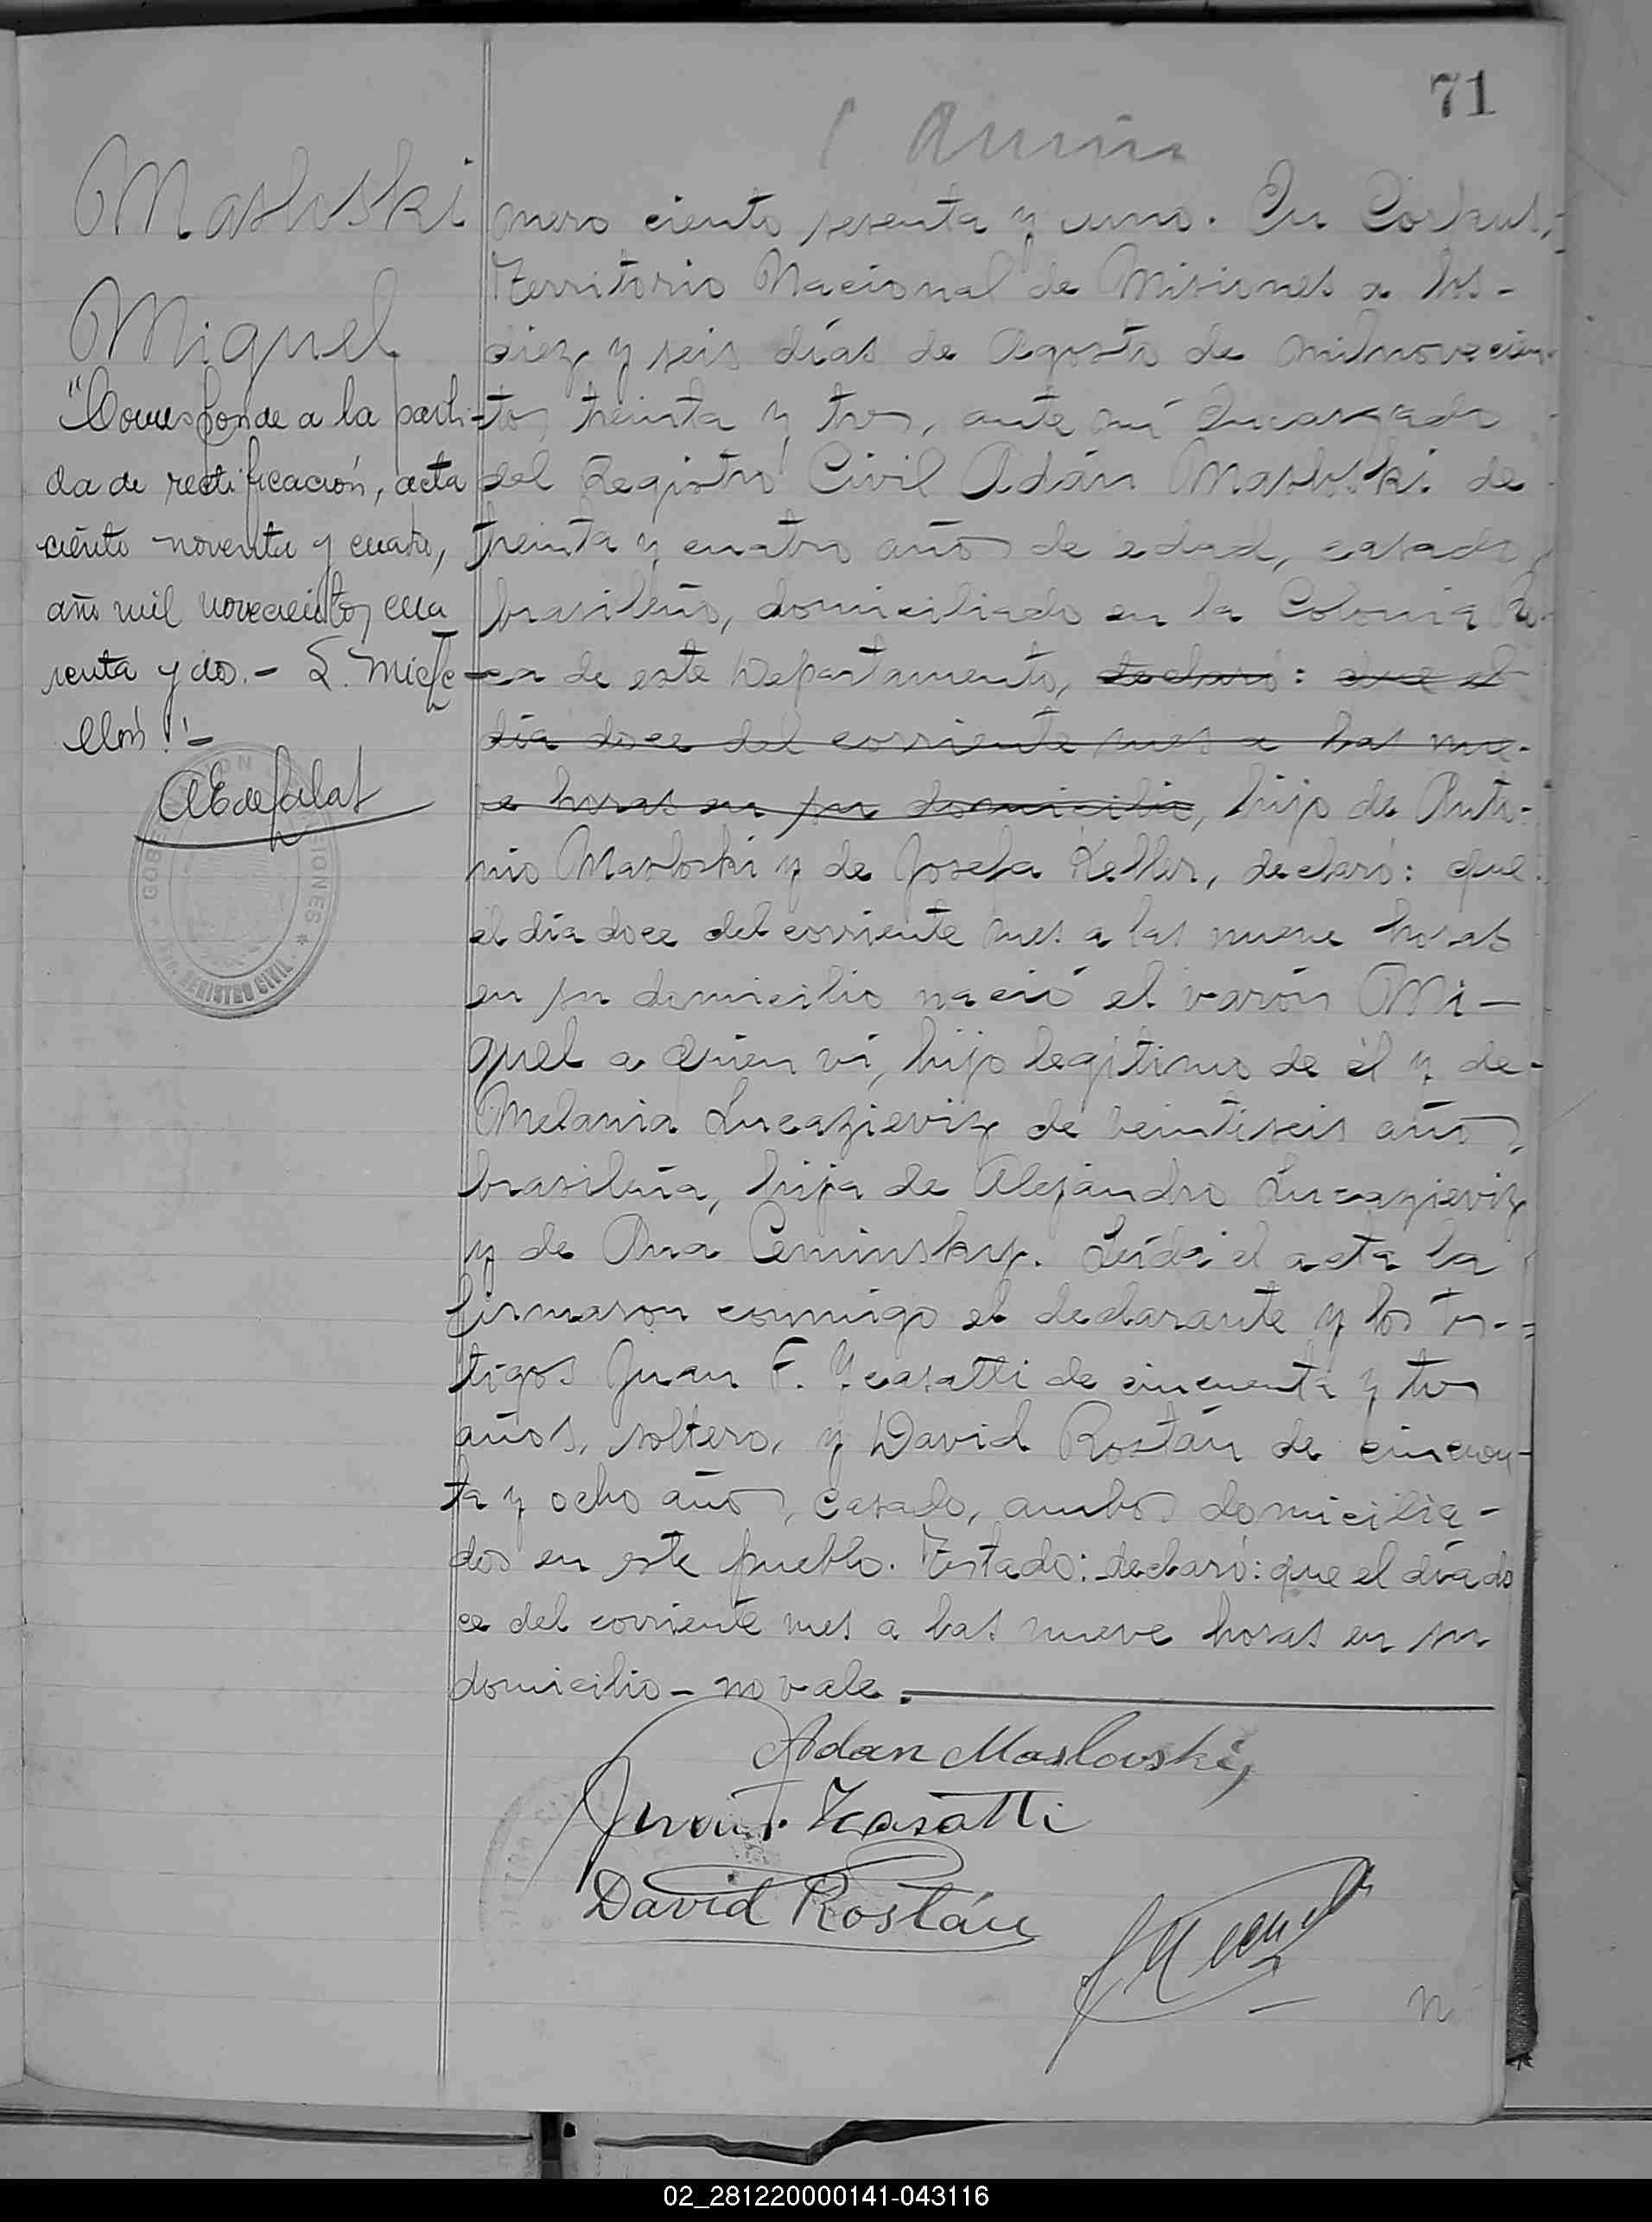 71
Masloski
Miguel
"Corresponde a la parti-
da de rectificación, acta
ciento noventa y cuatro,
año mil novecientos cua
renta y dos.-
GOBERNACION MISIONES
REGISTRO CIVIL
mero ciento sesenta y uno. En Corpus,
Territorio Nacional de Misiones a los-
diez y seis días de Agosto de milnovecien-
tos treinta y tres, ante mí Encargado
del Registro Civil Adán Masloski de
treinta y cuatro años de edad, casado,
brasileño, domiciliado en la Colonia Ro-
ca de este Departamento, declaró: que el
día doce del corriente mes a las nue-
ve horas en su domicilio, hijo de Anto-
nio Masloski y de Josefa Keller, declaró: que
el día doce del corriente mes a las nueve horas
en su domicilio nació el varón Mi-
guel a quien ví, hijo legítimo de él y de-
Melania Lucazieviz de veintiseis años,
brasileña, hija de Alejandro Lucazieviz
y de Ana Ceminsky. Leída el acta la
firmaron conmigo el declarante y los tes-
tigos Juan F. Ycasatti de cincuenta y tres
años, soltero, y David Rostán de cincuen-
ta y ocho años, casado, ambos domicilia-
dos en este pueblo. Testado: declaró: que el día do
ce del corriente mes a las nueve horas en su
domicilio - no vale.
Adan Maslovski,
Juan F. Ycasatti
David Rostán
02_281220000141-043116